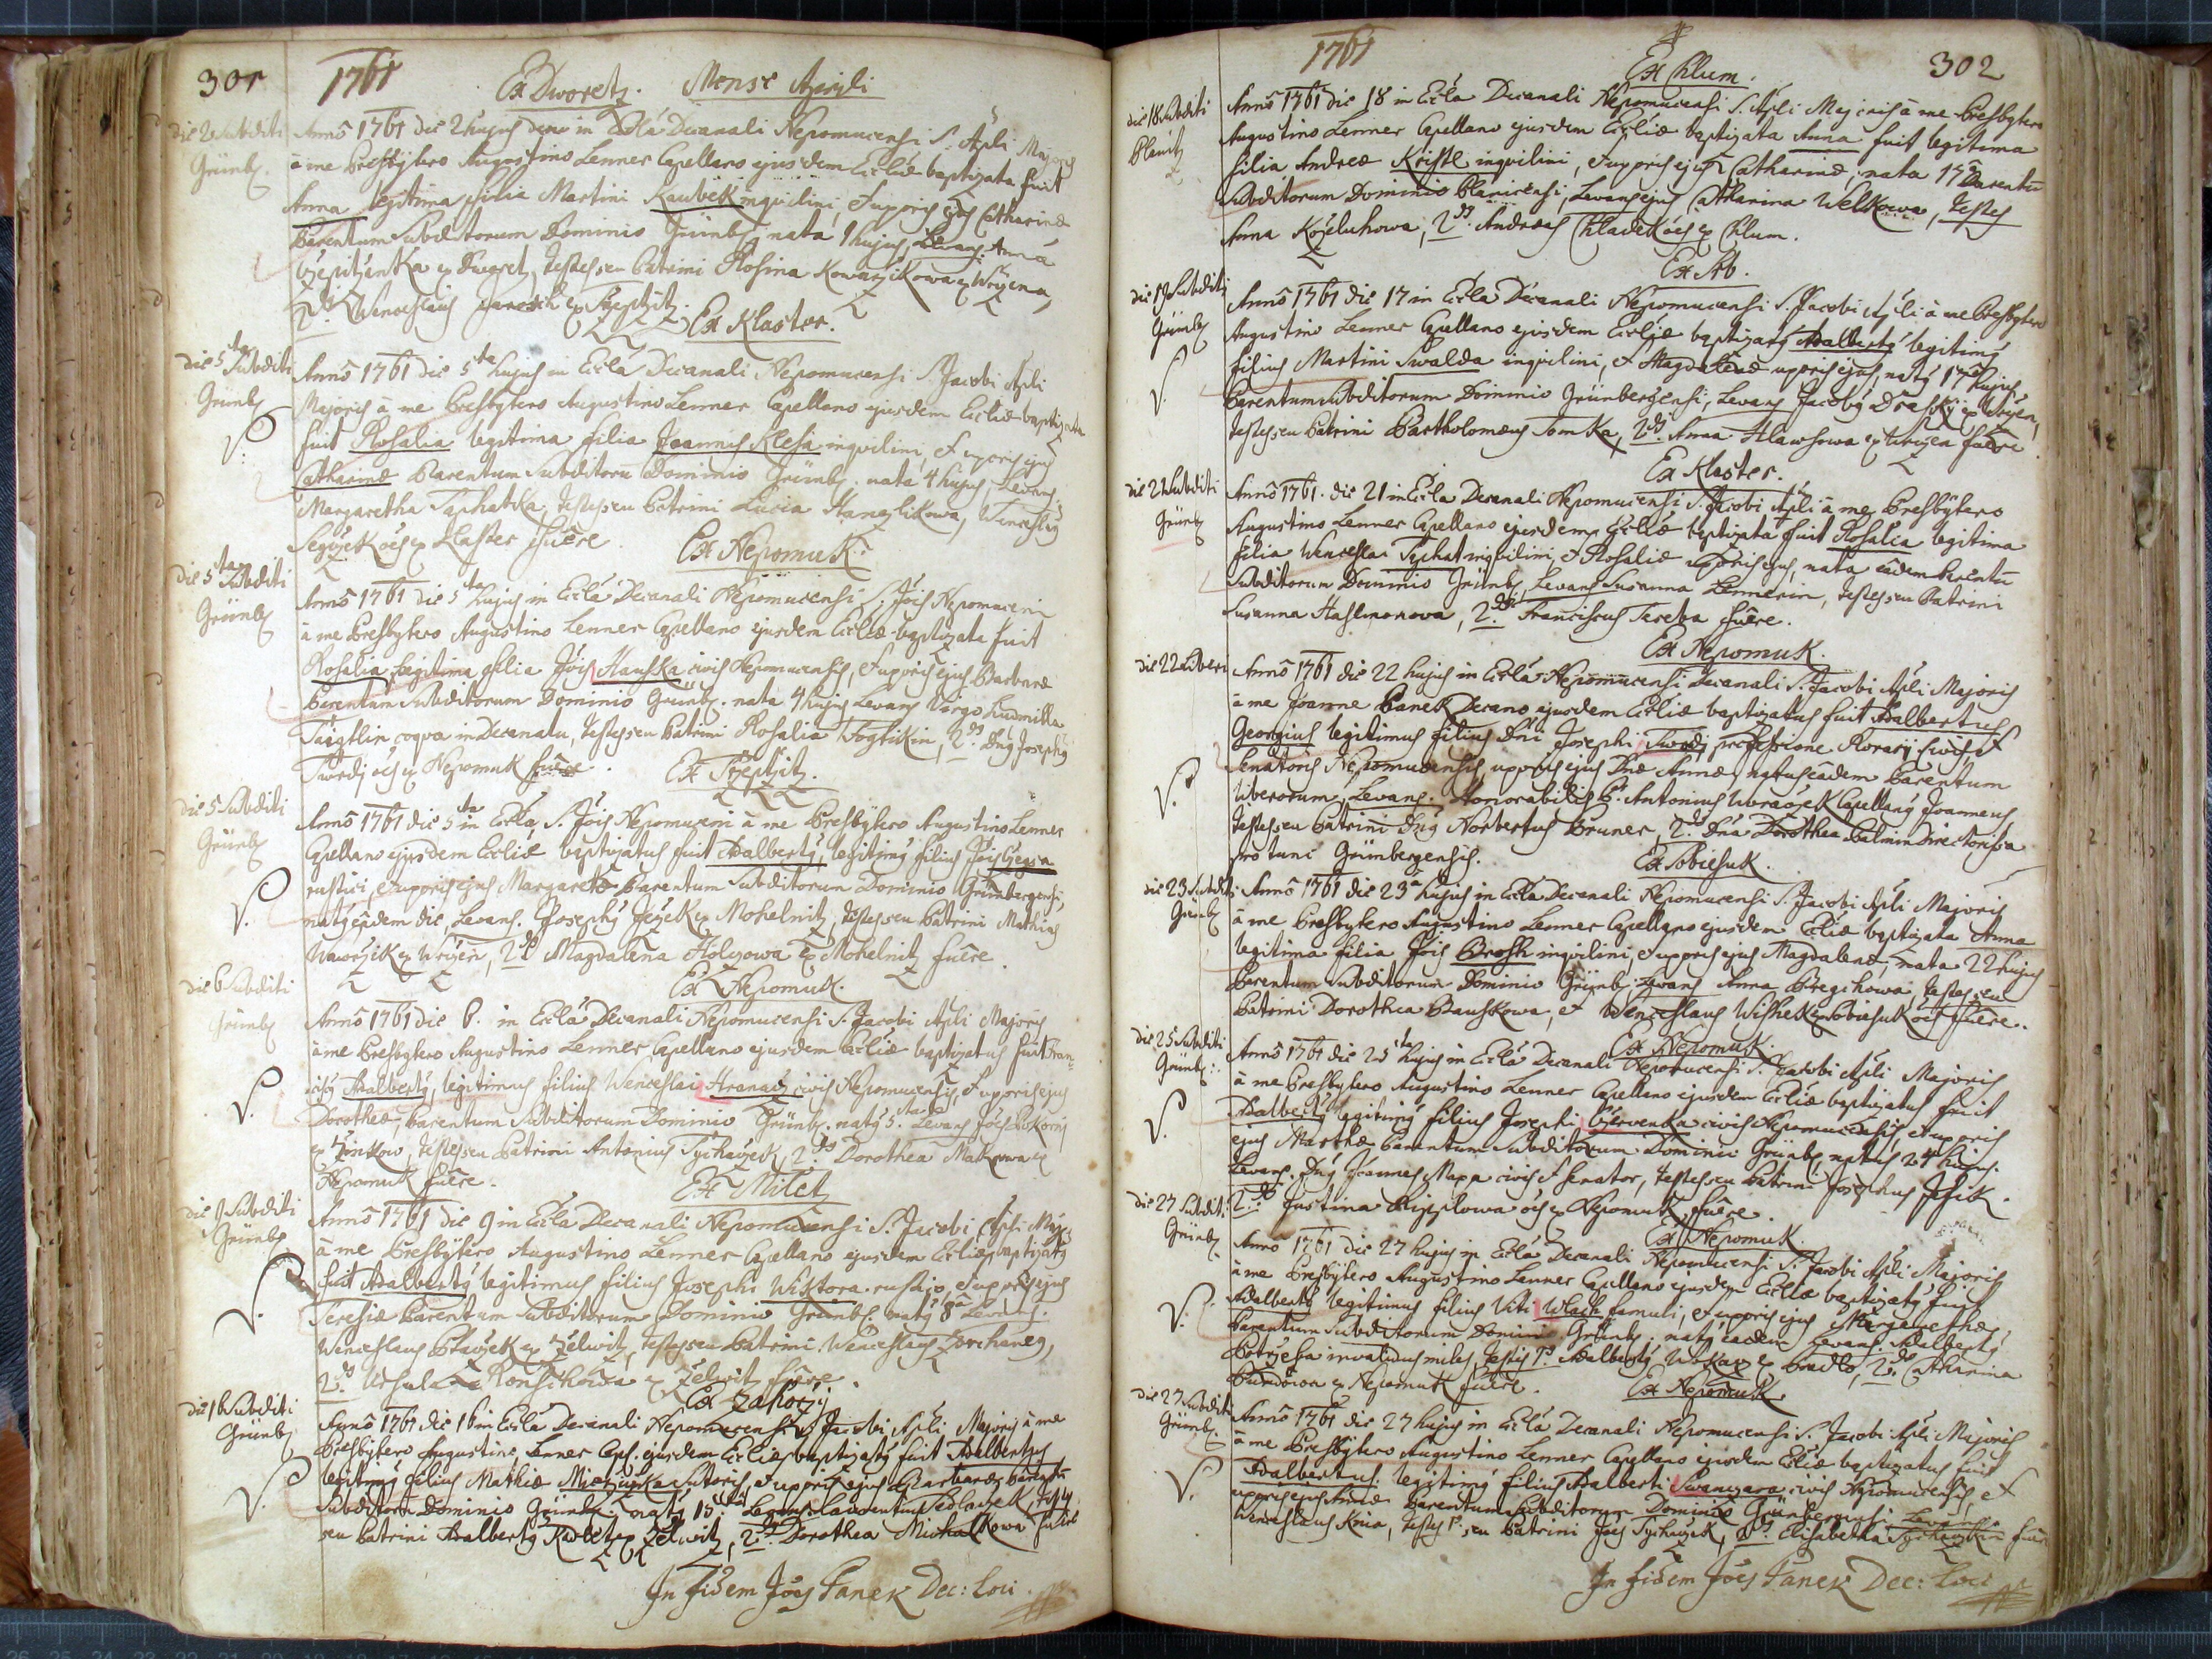 301
1761
Ex Dworetz. Mense Aprili
die 2 Subditi
Grünb.
Anno 1761 die 2 hujus in Eccla Decanali Nepomucensi S. Apli Majoris
à me Presbytero Augustino Lenner Capellano ejusdem Eccliæ baptizata fuit
Anna legitima filia Martini Kaubek inqvilini, et uxoris ejus Catharinæ
Parentum Subditorum Dominio Grünb. nata 1 hujus, Levans Anna
ex Dworetz, testes seu Patrini Rosina Kowarzikowa ex Wrczena,
2dus Wenceslaus Janesch ex Trzeptzitz.
Ex Klaster.
die 5ta Subditi
Grünb
Anno 1761 die 5ta hujus in Eccla Decanali Nepomucensi S. Jacobi Apli
Majoris à me Presbytero Augustino Lenner Capellano ejusdem Eccliæ baptizata
fuit Rosalia legitima filia Joannis Klesa inqvilini, et uxoris ejus
Catharinæ Parentum Subditoru Dominio Grünb. nata 4 hujus, Levans
Margaretha Taphatka, testes seu Patrini Lucia Hanezlikowa, Wenceslaus
oes ex Klaster fuêre
Ex Nepomuk.
die 5ta Subditi
Grünb
Anno 1761 die 5ta hujus in Eccla Decanali Nepomucensi S. Jois Nepomuceni
à me Presbytero Augustino Lenner Capellano ejusdem Eccliæ baptizata fuit
Rosalia Legitima filia Jois Hauska civis Nepomucensis, et uxoris ejus Barbaræ
Parentum Subditorum Dominio Grünb. nata 4 hujus Levans Virgo Ludmilla
Taigtlin coqva in Decanatu, testes seu Patrini Rosalia Wogtikin, 2dus Dnus Josephus
Twrdj oes ex Nepomuk fuêre.
Ex Trzeptzitz.
die 5 Subditi
Grünb
Anno 1761 die 5ta in Eccla S. Jois Nepomuceni à me Presbytero Augustino Lenner
Capellano ejusdem Eccliæ baptizatus fuit Adalbertus, legitimus filius Jois
rustici, et uxoris ejus Margaretæ Parentum Subditorum Dominio Grünbergensi,
natus eâdem die, Levans. Josephus Jezek ex Mohelnitz, testes seu Patrini Mathias
Waworzik ex Wrczen, 2da Magdalena Holczowa ex Mohelnitz fuêre.
Ex Nepomuk.
die 6 Subditi
Grünb
Anno 1761 die 6. in Eccla Decanali Nepomucensi S. Jacobi Apli Majoris
à me Presbytero Augustino Lenner Capellano ejusdem Eccliæ baptizatus fuit Fran-
ciscus Adalbertus, legitimus filius Wenceslai Hranacz civis Nepomucensis, et uxoris ejus
Dorotheæ, Parentum Subditorum Dominio Grünb. natus 5ta. Levans Jois Pokorny
ex Zinkow, testes seu Patrini Antonius Tychaczek, 2da Dorothea Makowa ex
Nepomuk fuêre.
Ex Milecz
die 9 Subditi
Grünb
Anno 1761 die 9 in Eccla Decanali Nepomucensi S. Jacobi Apli Majoris
à me Presbytero Augustino Lenner Capellano ejusdem Eccliæ baptizatus
fuit Adalbertus legitimus filius Josephi Wiktora rustici, et uxoris ejus
Teresiæ Parentum Subditorum Dominio Grünb. natus 8â Levans.
Wenceslaus Ptaczek ex Zelwitz, testes seu Patrini Wenceslaus Zorchanes,
2da Ursula Konsikowa ex Zelwitz fuêre.
Ex Zahorzj
die 16 Subditi
Grünb
Anno 1761 die 16 in Eccla Decanali Nepomucensi S. Jacobi Apli Majoris à me
Presbytero Augustino Lenner Capl. ejusdem Eccliæ baptizatus fuit Adalbertus
legitimus filius Mathiæ sutoris, et uxoris ejus Barbaræ Parentu
Subditoru Dominio Grünb. natus 15. Levans Laurentius Sedlaczek, testes
seu Patrini Adalbertus ex Zelwitz, 2da Dorothea Michalkowa fuêre
In fidem Joes Panek Dec: Loci
1761
302
Ex Chlum.
die 18 Subditi
Planitz
Anno 1761 die 18 in Eccla Decanali Nepomucensi S. Apli Majoris à me Presbytero
Augustino Lenner Capellano ejusdem Eccliæ baptizata Anna fuit legitima
filia Andreæ Kristl inqvilini, et uxoris ejus Catharinæ, nata 17â Parentu
Subditorum Dominio Planicensi, Levans ejus Catharina Welkowa, testes
Anna Kozeluhowa, 2dus. Andreas Chladek oes ex Chlum.
Ex Srb.
die 19 Subditi
Grünb
Anno 1761 die 17 in Eccla Decanali Nepomucensi S. Jacobi Apli à me Presbytero
Augustino Lenner Capellano ejusdem Eccliæ baptizatus Adalbertus legitimus
filius Martini Swalda inqvilini, et Magdalenæ uxoris ejus, natus 17â hujus
Parentum Subditorum Dominio Grünbergensi, Levans Jacobus ex Wrczen,
testes seu Patrini Bartholomæus Tomka, 2da. Anna Hlawsowa ex Wrczen fuêre.
Ex Klaster.
die 21 Subditi
Grünb
Anno 1761. die 21 in Eccla Decanali Nepomucensi S. Jacobi Apli à me Presbytero
Augustino Lenner Capellano ejusdem Eccliæ baptizata fuit Rosalia legitima
filia Wenceslai Tychat inqvilini, et Rosaliæ uxoris ejus, nata eâdem Parentu
Subditorum Dominio Grünb, Levans Susanna Lennerin, testes seu Patrini
Susanna Haslmonowa, 2dus. Franciscus Tereba fuêre.
Ex Nepomuk.
die 22 Liberi
Anno 1761 die 22 hujus in Eccla Nepomucensi Decanali S. Jacobi Apli Majoris
à me Joanne Panek Decano ejusdem Eccliæ baptizatus fuit Adalbertus
Georgius legitimus filius Dni Josephi Twrdj professione civis, et
Senatoris Nepomucensis, uxoris ejus Dnæ Annæ, natus eâdem Parentum
Liberorum, Levans. Honorabilis P. Antonius Woraczek Capellanus Joanneus,
testes seu Patrini Dnus Norbertus Bruner, 2da Dna Dorothea Palmin Directorissa
pro tunc Grünbergensis.
Ex Sobiesuk.
die 23 Subditi
Grünb
Anno 1761 die 23â hujus in Eccla Decanali Nepomucensi S. Jacobi Apli Majoris
à me Presbytero Augustino Lenner Capellano ejusdem Eccliæ baptizata Anna
legitima filia Jois Brosh inqvilini, et uxoris ejus Magdalenæ, nata 22 hujus
Parentum Subditorum Dominio Grünb. Levans Anna Bregchowa, testes seu
Patrini Dorothea Bauskowa, et Wenceslaus Wishek ex Sobiesuk oes fuêre.
Ex Nepomuk.
die 25 Subditi
Grünb.
Anno 1761 die 25ta hujus in Eccla Decanali Nepomucensi S. Jacobi Apli Majoris
à me Presbytero Augustino Lenner Capellano ejusdem Eccliæ baptizatus fuit
Adalbertus legitimus filius Josephi Czerwenka civis Nepomucensis, et uxoris
ejus Marthæ Parentum Subditorum Dominii Grünb. natus 24 hujus.
Levans. Dnus Joannes Mapa civis et senator, testes seu Patrini Josephus Jesik.
2da Justina Kripplowa oes ex Nepomuk fuêre.
Ex Nepomuk.
die 27 Subditi
Grünb
Anno 1761 die 27 hujus in Eccla Decanali Nepomucensi S. Jacobi Apli Majoris
à me Presbytero Augustino Lenner Capellano ejusdem Eccliæ baptizatus fuit
Adalbertus legitimus filius Viti Wlach famuli, et uxoris ejus Margarethæ,
Parentum Subditorum Dominio Grünb. natus eadem Levans. Adalbertus
invalidus miles, testis 1us. Adalbertus Wokacz ex Pradlo, 2da. Catharina
ex Nepomuk fuêre.
Ex Nepomuk.
die 27 Subditi
Grünb.
Anno 1761 die 27 hujus in Eccla Decanali Nepomucensi S. Jacobi Apli Majoris
à me Presbytero Augustino Lenner Capellano ejusdem Eccliæ baptizatus fuit
Adalbertus. legitimus filius Adalberti Swanczara civis Nepomucensis, et
uxoris ejus Annæ Parentum Subditorum Dominio Grünbergensi Levans
Wenceslaus Knia, testes seu Patrini Joes Tychaczek, 2da. Elisabetha fuêre
In fidem Joes Panek Dec: Loci